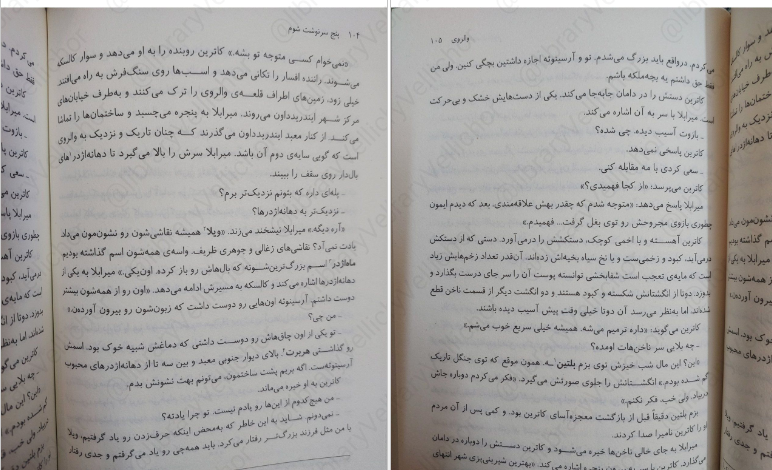 ۱۰۴ پنج سرنوشت شوم
«نمی‌خوام کسی متوجه تو بشه.» کاترین روبنده را به او می‌دهد و سوار کالسکه
می‌شوند. راننده افسار را تکانی می‌دهد و اسب‌ها روی سنگ‌فرش به راه می‌افتند
خیلی زود، زمین‌های اطراف قلعه‌ی والروی را ترک می‌کنند و به‌طرف خیابان‌های
مرکز شهر ایندریدداون می‌روند. میرابلا به پنجره می‌چسبد و ساختمان‌ها را تماشا
می‌کند. از کنار معبد ایندریدداون می‌گذرند که چنان تاریک و نزدیک به والروی
است که گویی سایه‌ی دوم آن باشد. میرابلا سرش را بالا می‌گیرد تا دهانه‌اژدرهای
بال‌دار روی سقف را ببیند.
ـ پله‌ای داره که بتونم نزدیک‌تر برم؟
ـ نزدیک‌تر به دهانه‌اژدرها؟
«آره دیگه.» میرابلا نیشخند می‌زند. «ویلا همیشه نقاشی‌شون رو نشون‌مون می‌داد
یادت نمی‌آد؟ نقاشی‌های زغالی و جوهری ظریف. واسه‌ی همه‌شون اسم گذاشته بودیم
اسم بزرگ‌ترین‌شونه که بال‌هاش رو باز کرده. اون‌یکی.» میرابلا به یکی از
دهانه‌اژدرها اشاره می‌کند و کالسکه به مسیرش ادامه می‌دهد. «اون رو از همه‌شون بیشتر
دوست داشتم. آرسینوئه اون‌هایی رو دوست داشت که زبون‌شون رو بیرون آورده‌ن.»
ـ من چی؟
ـ تو یکی از اون چاق‌هاش رو دوست داشتی که دماغش شبیه خوک بود. اسمش
رو گذاشتی هربرت. بالای دیوار جنوبی معبد و بین سه تا از دهانه‌اژدرهای محبوب
آرسینوئه‌ست. اگه بریم پشت ساختمون، می‌تونم بهت نشونش بدم.
کاترین به او خیره می‌ماند.
ـ من هیچ‌کدوم از این‌ها رو یادم نیست. تو چرا یادته؟
ـ نمی‌دونم. شاید به این خاطر که به‌محض اینکه حرف‌زدن رو یاد گرفتیم، ویلا
با من مثل فرزند بزرگ‌تر رفتار می‌کرد. باید همه‌چی رو یاد می‌گرفتم و جدی رفتار
والروی ۱۰۵
می‌کردم. درواقع باید بزرگ می‌شدم. تو و آرسینوئه اجازه داشتین بچگی کنین. ولی من
فقط حق داشتم یه بچه‌ملکه باشم.
کاترین دستش را در دامان جابه‌جا می‌کند. یکی از دست‌هایش خشک و بی‌حرکت
است. میرابلا با سر به آن اشاره می‌کند.
ـ بازوت آسیب دیده. چی شده؟
کاترین پاسخی نمی‌دهد.
ـ سعی کردی با مه مقابله کنی.
کاترین می‌پرسد: «از کجا فهمیدی؟»
میرابلا پاسخ می‌دهد: «متوجه شدم که چقدر بهش علاقه‌مندی. بعد که دیدم ایمون
چطوری بازوی مجروحش رو توی بغل گرفت... فهمیدم.»
کاترین آهسته و با اخمی کوچک، دستکشش را درمی‌آورد. دستی که از دستکش
درمی‌آید، کبود و زخمی‌ست و با نخ سیاه بخیه‌اش زده‌اند. آن‌قدر تعداد زخم‌هایش زیاد
است که مایه‌ی تعجب است شفابخشی توانسته پوست آن را سر جای درست بگذارد و
بدوزد. دوتا از انگشتانش شکسته و کبود هستند و دو انگشت دیگر از قسمت ناخن قطع
شده‌اند. اما به‌نظر می‌رسد آن دوتا خیلی وقت پیش آسیب دیده باشند.
کاترین می‌گوید: «داره ترمیم می‌شه. همیشه خیلی سریع خوب می‌شم.»
ـ چه بلایی سر ناخن‌هات اومده؟
«این؟ این مال شب خیزش توی بزم بلتین‌ـه. همون موقع که توی جنگل تاریک
گم شده بودم.» انگشتانش را جلوی صورتش می‌گیرد. «فکر می‌کردم دوباره جاش
دربیاد. ولی خب، فکر نکنم.»
بزم بلتین دقیقاً قبل از بازگشت معجزه‌آسای کاترین بود. و کمی پس از آن مردم
او را کاترین نامیرا صدا کردند.
میرابلا به جای خالی ناخن‌ها خیره می‌شود و کاترین دستش را دوباره در دامان
می‌گذارد. کاترین با سر به بیرون پنجره اشاره می‌کند. «بهترین شیرینی‌پزی شهر انتهای